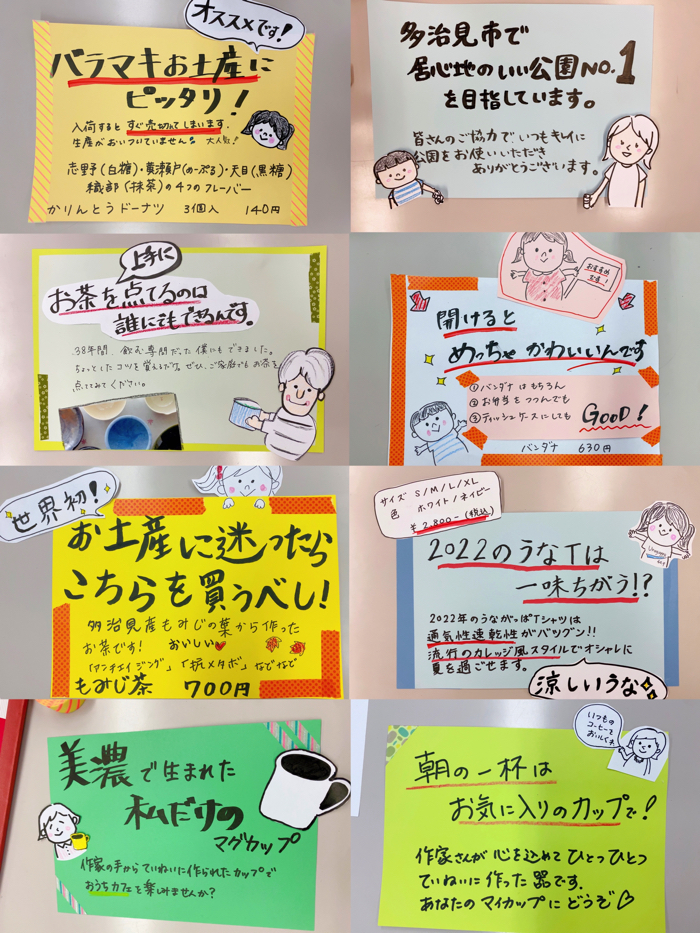 オススメです!
バラマキお土産に
ピッタリ!
入荷すると すぐ売切れてしまいます。
生産がおいついていません 大人気!
志野(白糖)・黄瀬戸(めーぷる)・天目(黒糖)
織部(抹茶)の4つのフレーバー
かりんとうドーナツ 3個入 140円
多治見市で
居心地のいい公園NO.1
を目指しています。
皆さんのご協力で、いつもキレイに
公園をお使いいただき
ありがとうございます。
上手に
お茶を点てるのは
誰にでもできるんです。
38年間、飲む専門だった僕にもできました。
ちょっとしたコツを覚えるだけ。ぜひ、ご家庭でもお茶を
点ててみてください。
おすすめ
開けると
めっちゃ かわいいんです
①バンダナはもちろん
②お弁当をつつんでも
③ティッシュケースにしても
GOOD!
バンダナ 630円
世界初!
お土産に迷ったら
こちらを買うべし!
多治見産もみじの葉から作った
お茶です! おいしい♥
「アンチエイジング」「抗メタボ」などなど
もみじ茶 700円
サイズ S/M/L/XL
色 ホワイト/ネイビー
¥2,800-(税込)
2022のうなTは
一味ちがう!?
2022年のうながっぱTシャツは
通気性速乾性がバツグン!!
流行のカレッジ風スタイルでオシャレに
夏を過ごせます。
涼しいうな
美濃で生まれた
私だけの
マグカップ
作家の手からていねいに作られたカップで
おうちカフェを楽しみませんか?
いつもの
コーヒーも
おいしくネ
朝の一杯は
お気に入りのカップで!
作家さんが心を込めてひとつひとつ
ていねいに作った器です。
あなたのマイカップにどうぞ♡